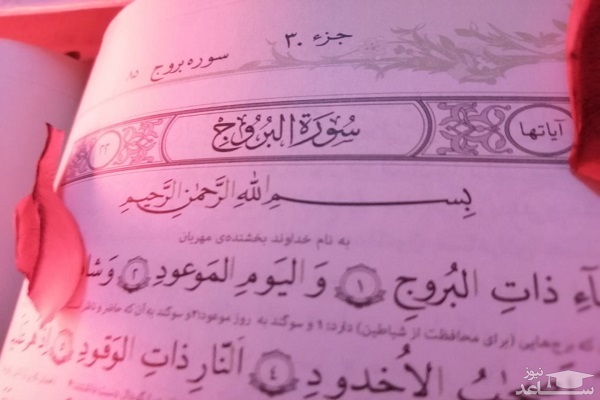 جزء ۳۰
سوره بروج ۸۵
آیاتها سُورَةُ البُرُوجِ ۲۲
بِسمِ اللهِ الرَّحمٰنِ الرَّحیمِ
به نام خداوند بخشنده‌ی مهربان
ذاتِ البُروجِ ۱ وَ الیَومِ المَوعودِ ۲
که برج‌هایی (برای محافظت از شیاطین) دارد؛ ۱ و سوگند به روز موعود؛ ۲ و سوگند به آن که حاضر و ناظر
الاُخدودِ ۴ النّارِ ذاتِ الوَقودِ ۵
نیوز
ســاعد